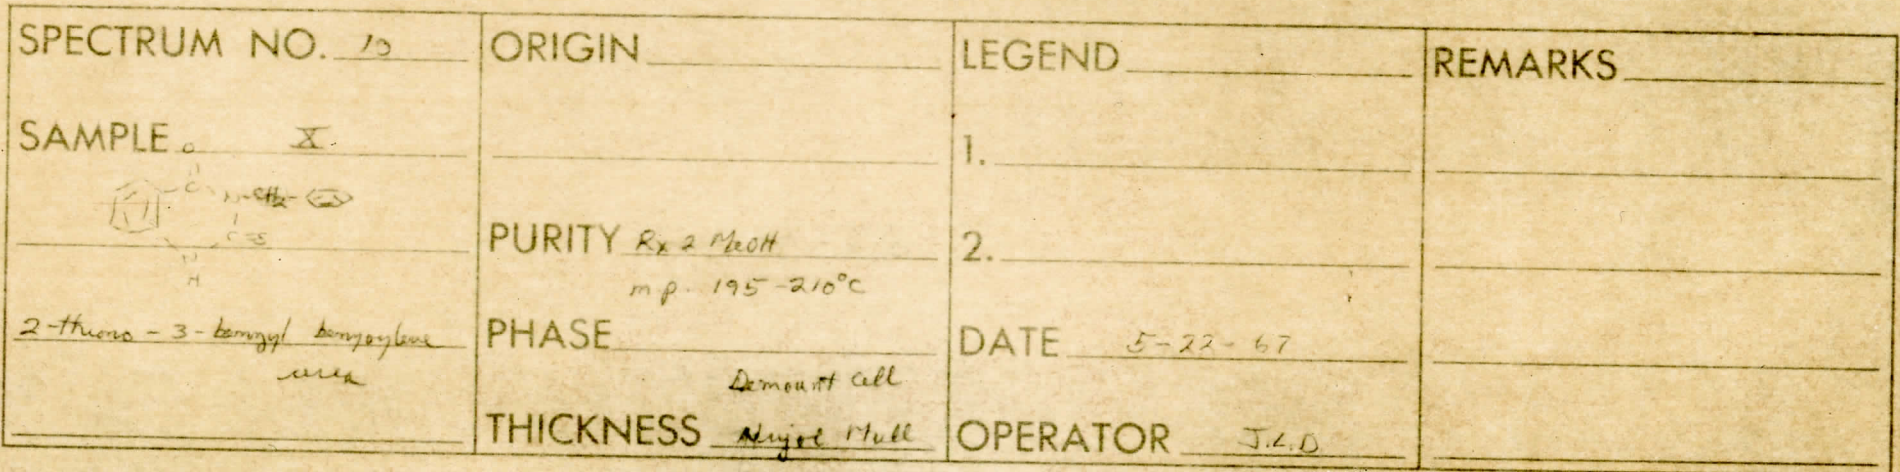 SPECTRUM NO. 10
SAMPLE X
O
C
N-CH2-
C=S
N
H
2-thiono-3-benzyl benzoylene
urea
ORIGIN
PURITY Rx 2 MeOH
mp. 195-210°C
PHASE
Demount Cell
THICKNESS Nujol Mull
LEGEND
1.
2.
DATE 5-22-67
OPERATOR J.L.D
REMARKS